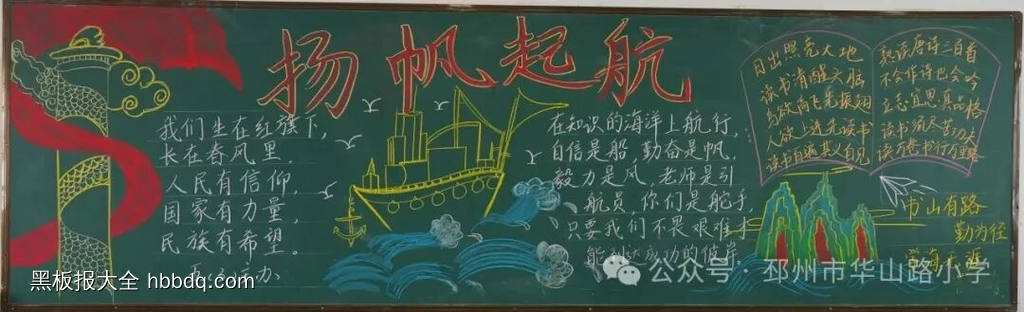 扬帆起航
我们生在红旗下,
长在春风里.
人民有信仰,
国家有力量,
民族有希望.
在知识的海洋上航行,
自信是船,勤奋是帆,
毅力是风,老师是引
航员,你们是舵手,
只要我们不畏艰难
成功的彼岸
日出照亮大地
读书清醒头脑
鸟欲高飞先振翅
人欲上进先读书
读书百遍其义自见
熟读唐诗三百首
不会作诗也会吟
立志宜思真品格
读书须尽苦功夫
读万卷书行万里路
书山有路
勤为径
黑板报大全 hbbdq.com
公众号·邳州市华山路小学